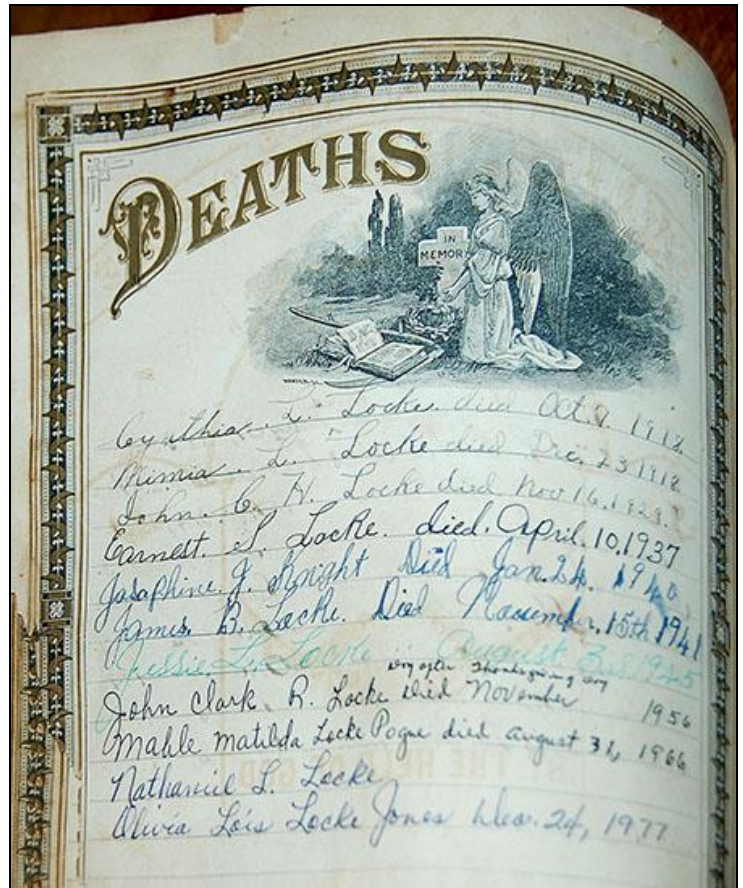 DEATHS
IN
MEMORY
Cynthia. L. Locke. died Oct. 9. 1918
Mimia. L. Locke died Dec. 23 1918
John. C. H. Locke died Nov 16. 1929.
Earnest. S. Locke. died. April. 10, 1937
Josaphine. J. Knight Died Jan. 24. 1940
James. B. Locke. Died November. 15th 1941
Jessie L. Locke August 3rd
day after Thanksgiving day
John Clark R. Locke died November 1956
Mahle Matilda Locke Pogue died august 31, 1966
Nathaniel L. Locke
Olivia Lois Locke Jones Dec. 24, 1977